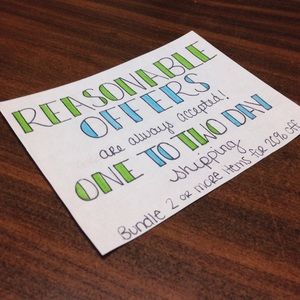 REASONABLE
OFFERS
are always accepted!
ONE TO TWO DAY
shipping
Bundle 2 or more items for 25% off